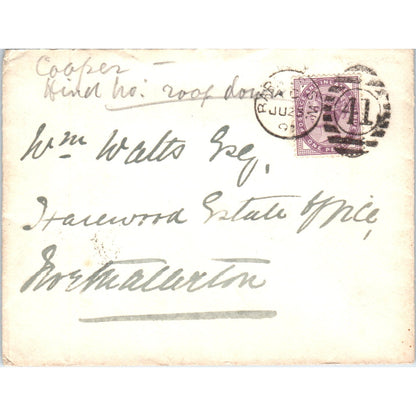 Cooper –
Hind No: roof down
Wm Watts Esq,
Harewood Estate Office,
Northallerton